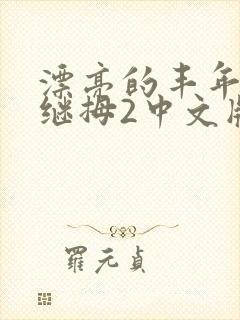 漂亮的丰年
继拇2中文版
羅元貞